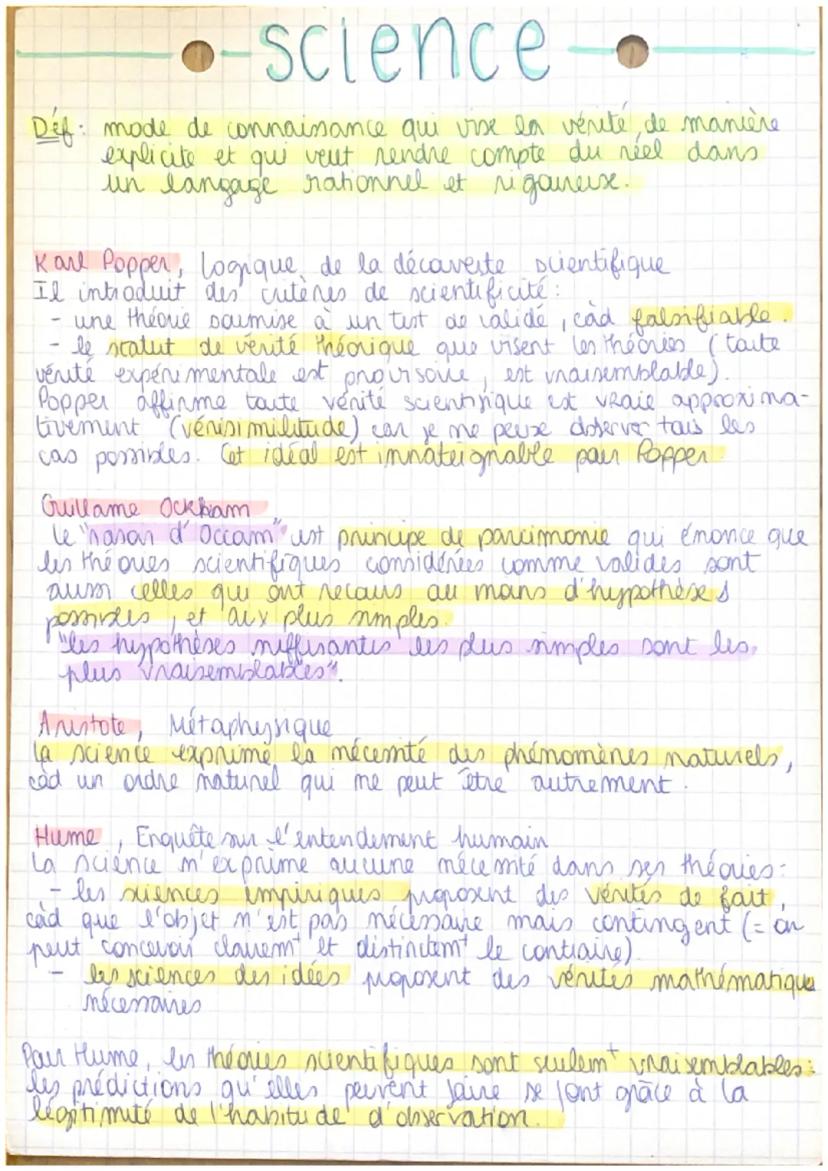 science
Déf : mode de connaissance qui vise la vérité de manière
explicite et qui veut rendre compte du réel dans
un langage rationnel et rigoureux.
Karl Popper, Logique de la découverte scientifique
Il introduit des critères de scientificité :
- une théorie soumise à un test de validé, càd falsifiable.
- le statut de vérité théorique que visent les théories (toute
vérité expérimentale est provisoire, est vraisemblable).
Popper affirme toute vérité scientifique est vraie approxima-
tivement (vérisimilitude) car je ne peux observer tous les
cas possibles. Cet idéal est innateignable pour Popper
Guillame Ockham
Le "rasoir d'Occam" est principe de parcimonie qui énonce que
les théories scientifiques considérées comme valides sont
aussi celles qui ont recours au moins d'hypothèses
possibles, et aux plus simples.
"les hypothèses suffisantes les plus simples sont les
plus vraisemblables".
Aristote, Métaphysique
La science exprime la nécessité des phénomènes naturels,
càd un ordre naturel qui ne peut être autrement.
Hume, Enquête sur l'entendement humain
La science n'exprime aucune nécessité dans ses théories :
- les sciences empiriques proposent des vérités de fait,
càd que l'objet n'est pas nécessaire mais contingent (= on
peut concevoir clairemt et distinctemt le contraire)
- les sciences des idées proposent des vérités mathématique
nécessaires
Pour Hume, les théories scientifiques sont seulemt vraisemblables :
les prédictions qu'elles peuvent faire se font grâce à la
légitimité de l'habitude d'observation.